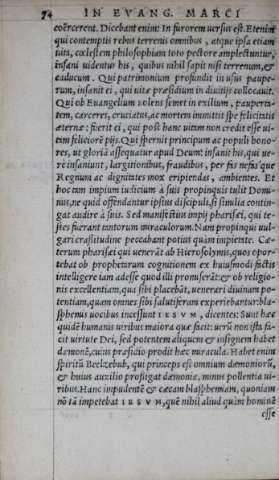 74 IN EVANG. MARCI
coërcerent. Dicebant enim: In furorem uersus est. Etenim
qui contemptis rebus terrenis omnibus, atque ipsa etiam
uita, cœlestem philosophiam toto pectore amplectuntur,
insani uidentur his, quibus nihil sapit nisi terrenum, &
caducum. Qui patrimonium profundit in usus paupe-
rum, insanit ei, qui uitæ præsidium in diuitijs collocauit.
Qui ob Euangelium uolens semet in exilium, pauperta-
tem, carceres, cruciatus, ac mortem immittit spe felicitatis
æternæ: furit ei, qui post hanc uitam non credit esse ui-
tam feliciorē pijs. Qui spernit principum ac populi hono-
res, ut gloriā assequatur apud Deum: insanit his, qui ue-
re insaniunt, largitionibus, fraudibus, per fas nefas que
Regnum ac dignitates mox eripiendas, ambientes. Et
hoc tam impium iudicium à suis propinquis tulit Domi-
nus, ne quid offendantur ipsius discipuli, si similia contin-
gat audire à suis. Sed manifestius impij pharisæi, qui te-
stes fuerant tantorum miraculorum. Nam propinqui uul-
gari crassitudine peccabant potius quàm impietate. Cæ-
terum pharisæi qui uenerāt ab Hierosolymis, quos opor-
tebat ob prophetarum cognitionem ex huiusmodi factis
intelligere iam adesse quod illi promiserāt: & ob religio-
nis excellentiam, qua sibi placebāt, uenerari diuinam po-
tentiam, quam omnes sibi salutiferam experiebantur: bla-
sphemis uocibus incessunt IESVM, dicentes: Sunt hæc
quidē humanis uiribus maiora quæ facit: uerū non ista fa-
cit uirtute Dei, sed potentem aliquem & insignem habet
dæmonē, cuius præsidio prodit hæc miracula. Habet enim
spiritū Beelzebub, qui princeps est omnium dæmoniorū,
& huius auxilio profligat dæmonia, minus pollentia ui-
ribus. Hanc impudentē & cæcam blasphemiam, quoniam
nō tā impetebat IESVM, quē nihil aliud quàm hominē
esse